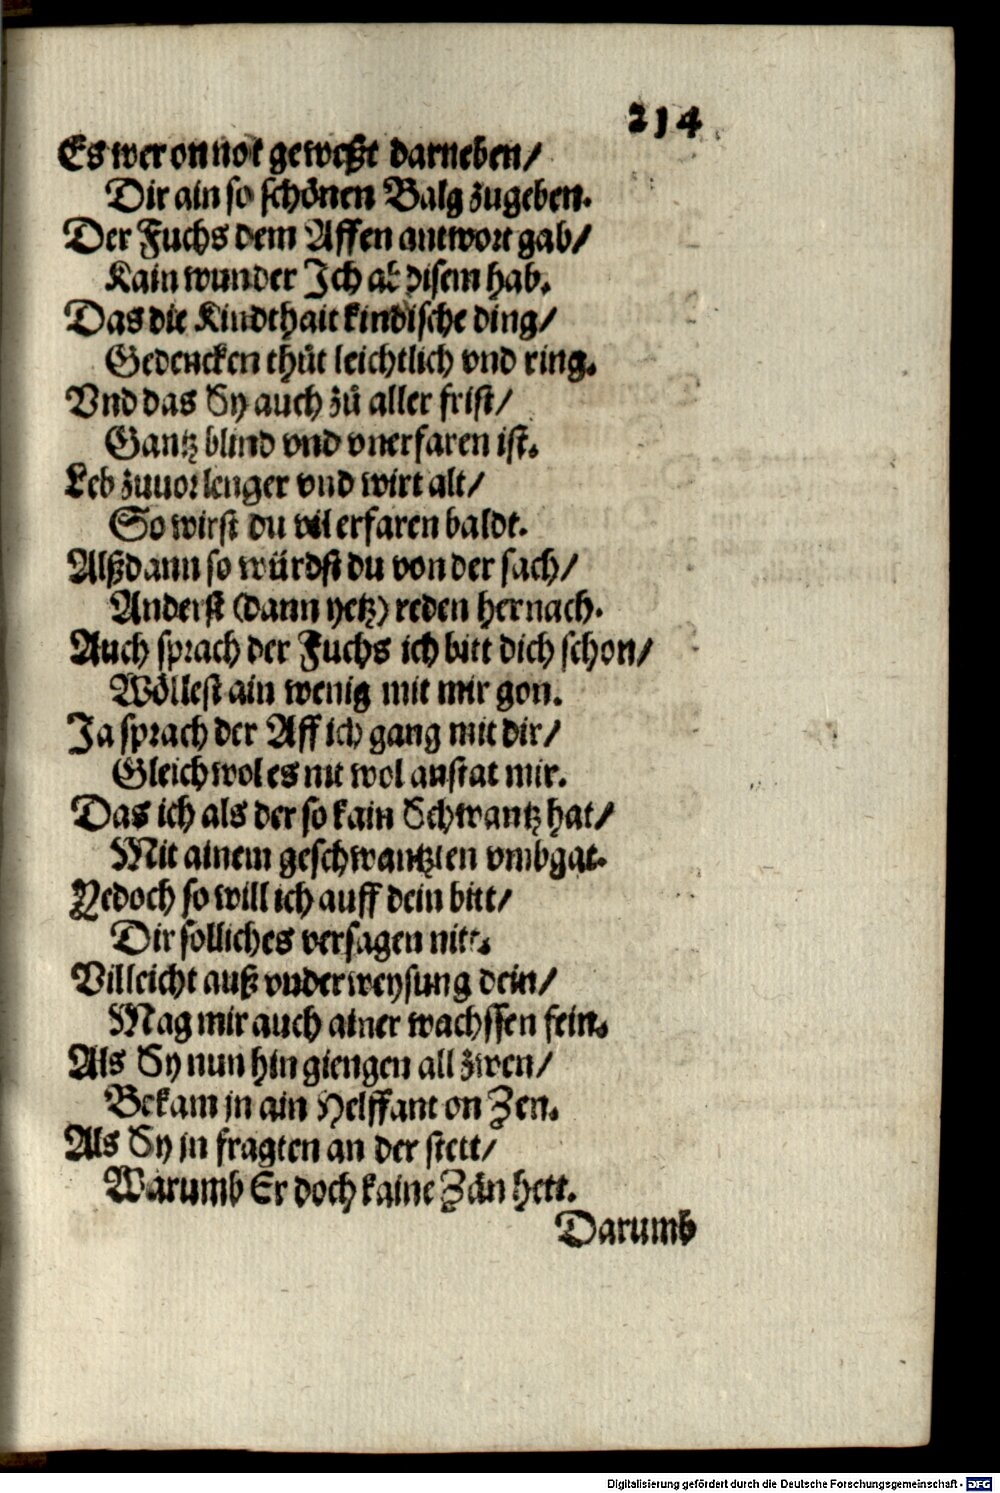 214
Es wer on not geweßt darneben/
Dir ain so schönen Balg zugeben.
Der Fuchs dem Affen antwort gab/
Kain wunder Ich ab disem hab.
Das die Kindthait kindische ding/
Gedencken thůt leichtlich vnd ring.
Vnd das Sy auch zů aller frist/
Gantz blind vnd vnerfaren ist.
Leb zuuor lenger vnd wirt alt/
So wirst du vil erfaren baldt.
Alßdann so würdst du von der sach/
Anderst (dann yetz) reden hernach.
Auch sprach der Fuchs ich bitt dich schon/
Wöllest ain wenig mit mir gon.
Ja sprach der Aff ich gang mit dir/
Gleichwol es nit wol anstat mir.
Das ich als der so kain Schwantz hat/
Mit ainem geschwantzten vmbgat.
Yedoch so will ich auff dein bitt/
Dir solliches versagen nitt.
Villeicht auß vnderweysung dein/
Mag mir auch ainer wachssen fein.
Als Sy nun hin giengen all zwen/
Bekam jn ain Helffant on Zen.
Als Sy jn fragten an der stett/
Warumb Er doch kaine Zän hett.
Darumb
Digitalisierung gefördert durch die Deutsche Forschungsgemeinschaft - DFG